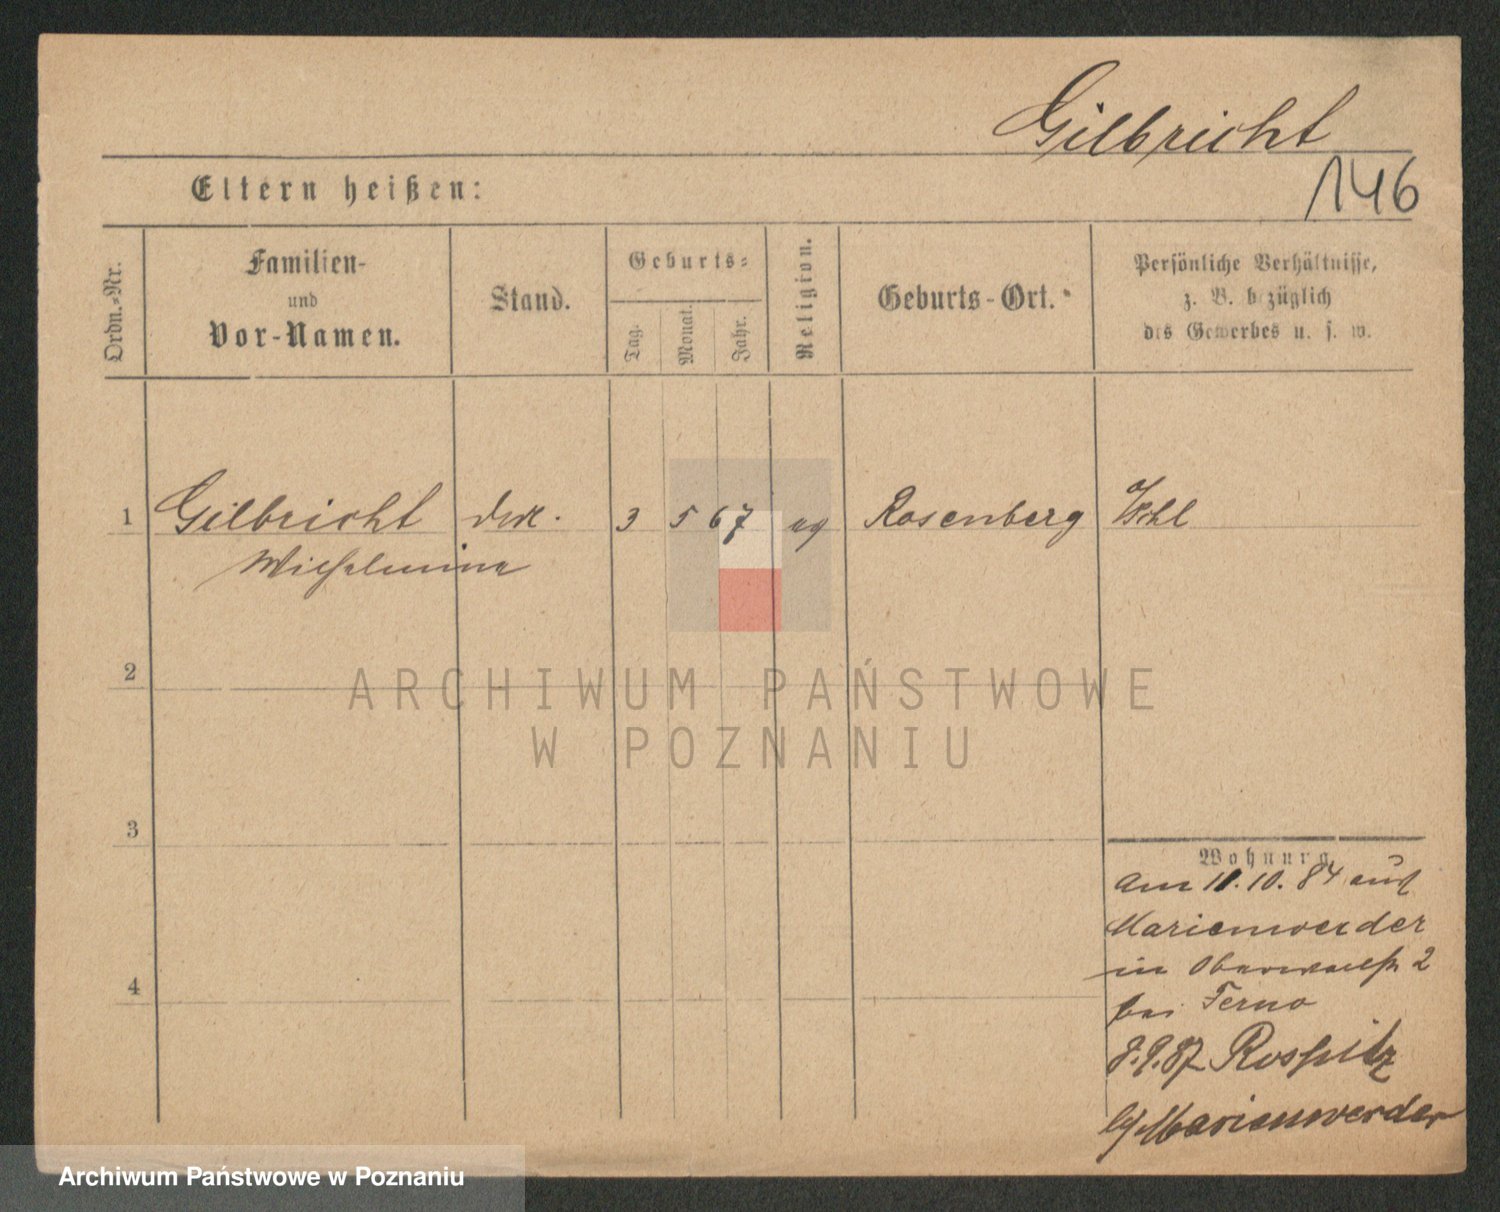 Gilbricht
146
Eltern heißen:
Ordn.-Nr.
Familien-
und
Vor-Namen.
Stand.
Geburts-
Tag.
Monat.
Jahr.
Religion.
Geburts-Ort.
Persönliche Verhältnisse,
z. B. bezüglich
des Gewerbes u. s. w.
1 Gilbricht 3 5 67 Rosenberg
Wilhelmine
2
ARCHIWUM PAŃSTWOWE
W POZNANIU
3
Wohnung
am 11.10.84 aus
Marienwerder
in 2
bei
8.9.87 Rospitz
b/ Marienwerder
4
Archiwum Państwowe w Poznaniu